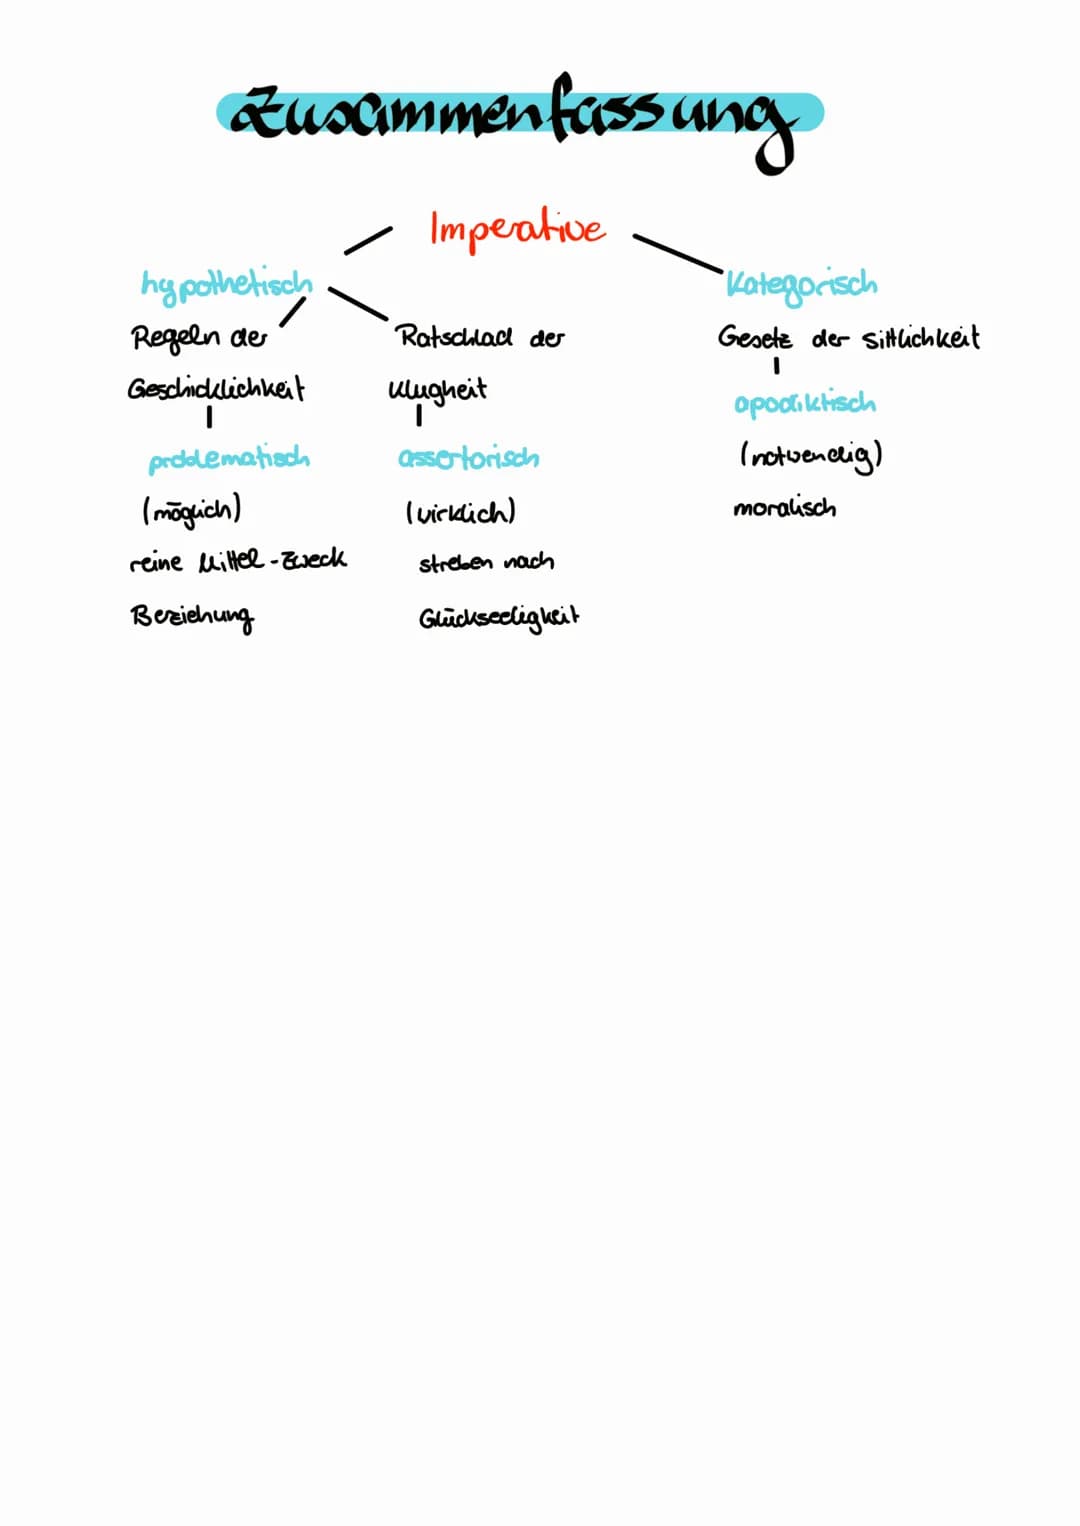 Zusammenfassung
Imperative
hypothetisch
Regeln der
Geschicklichkeit
problematisch
(möglich)
reine Mittel-Zweck
Beziehung
Ratschlad der
Klugheit
assertorisch
(wirklich)
streben nach
Glückseeligkeit
Kategorisch
Gesetz der Sittlichkeit
apodiktisch
(notwendig)
moralisch